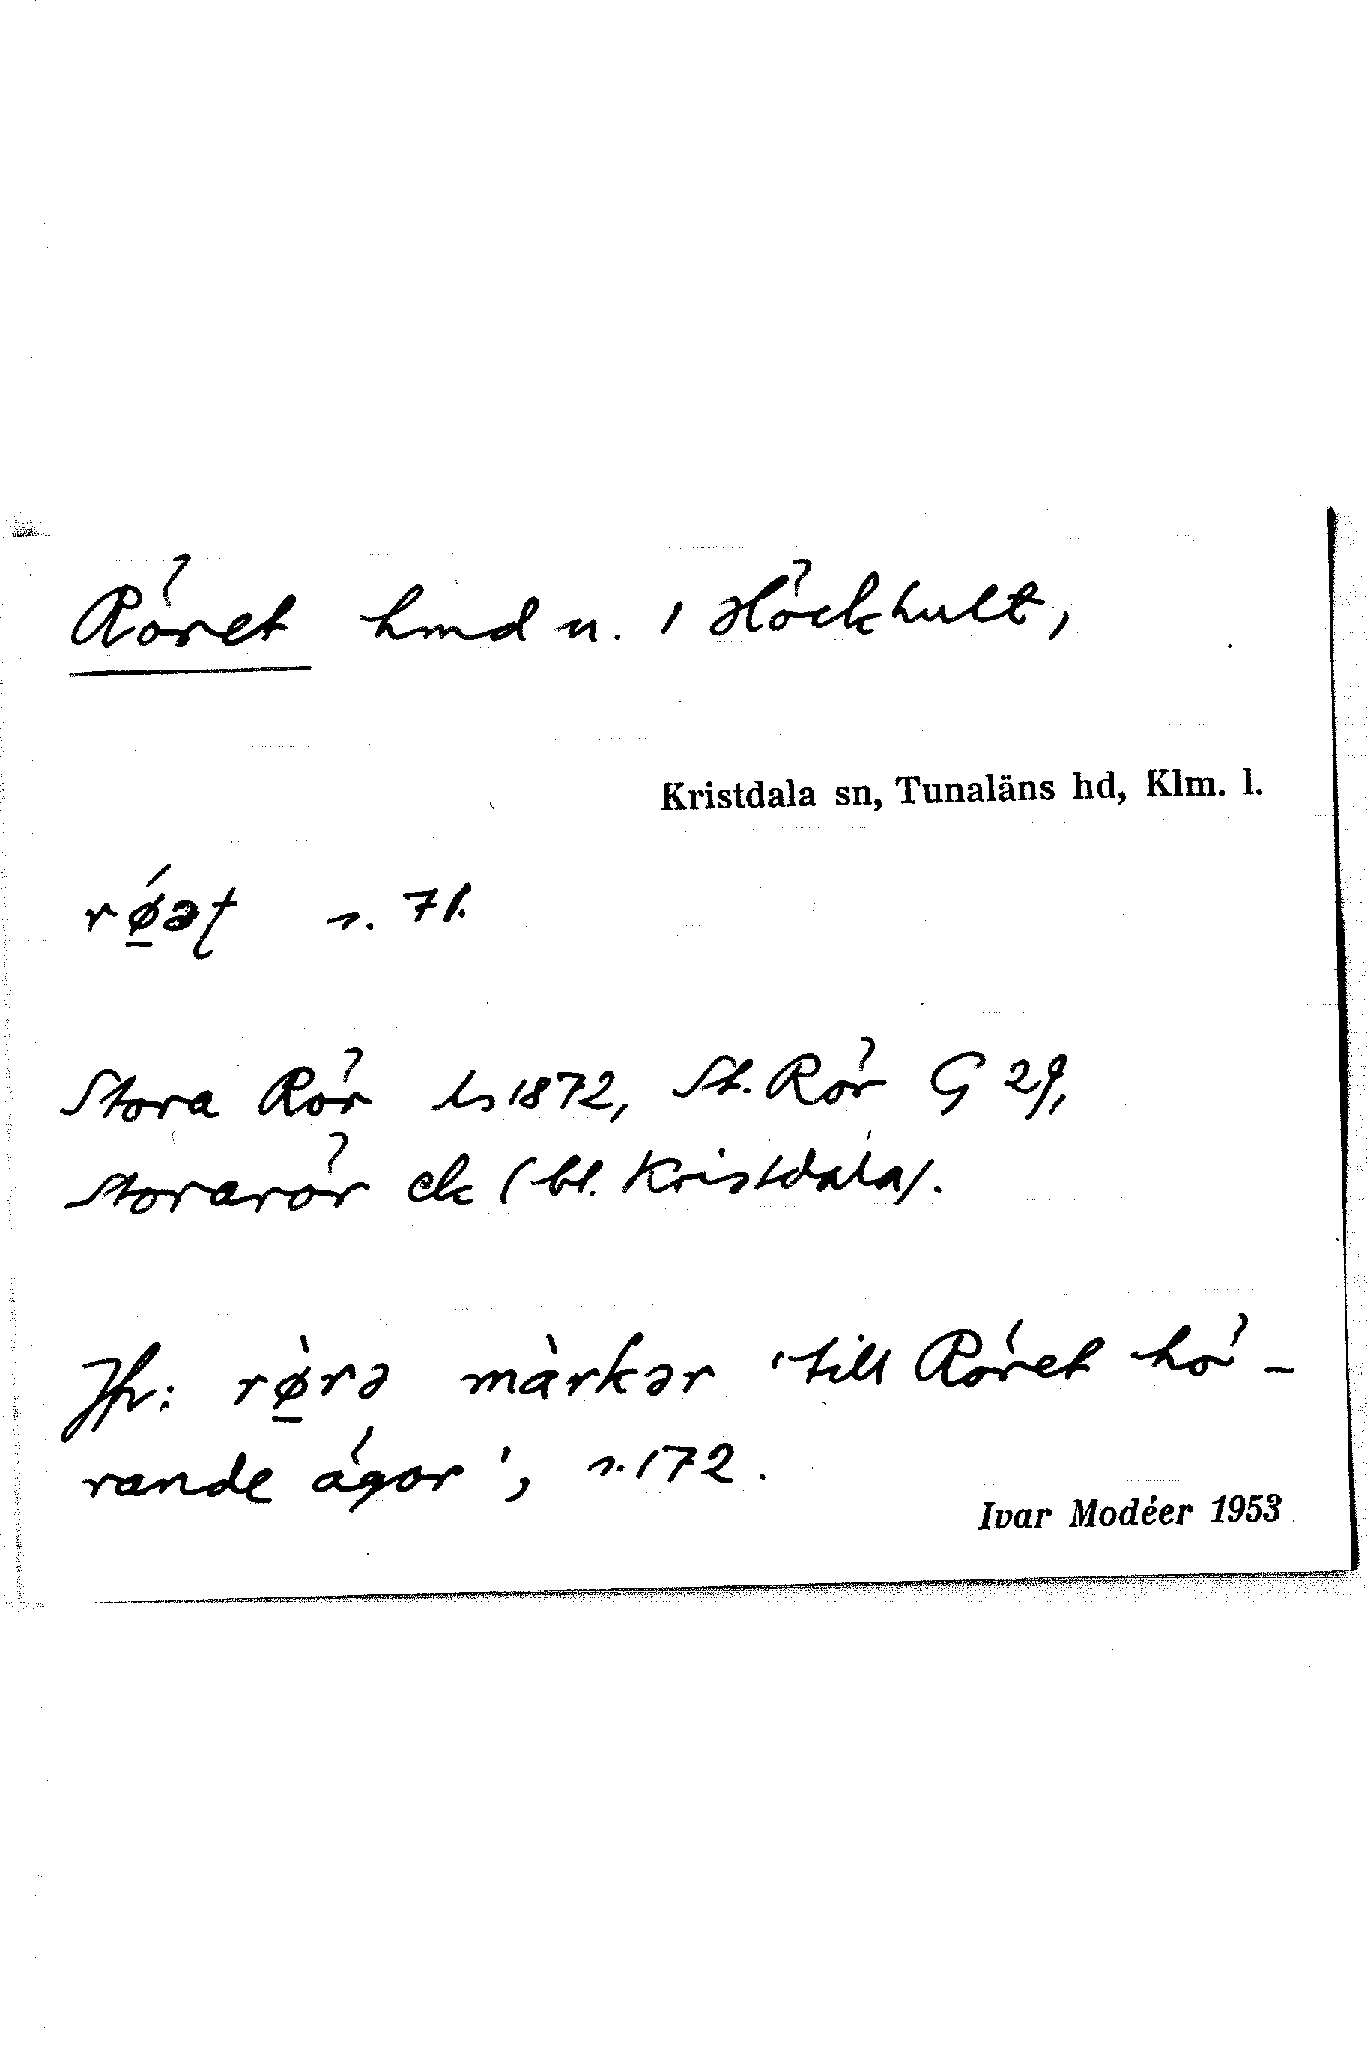 Röret hmd u. i Höckhult,
Kristdala sn, Tunaläns hd, Klm. l.
rǿ̱əʈ s. 71.
Stora Rör ls 1872, St. Rör G 29,
Storarör ek (bl. Kristdala).
Jfr: rø̱̀rə märkər 'till Röret hö-
rande ägor', s. 172.
Ivar Modéer 1953